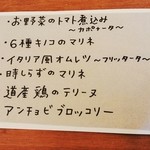 ・お野菜のトマト煮込み
〜カポナータ〜
・6種キノコのマリネ
・イタリア風オムレツ
〜フリッタータ〜
・時しらずのマリネ
道産鶏のテリーヌ
アンチョビブロッコリー